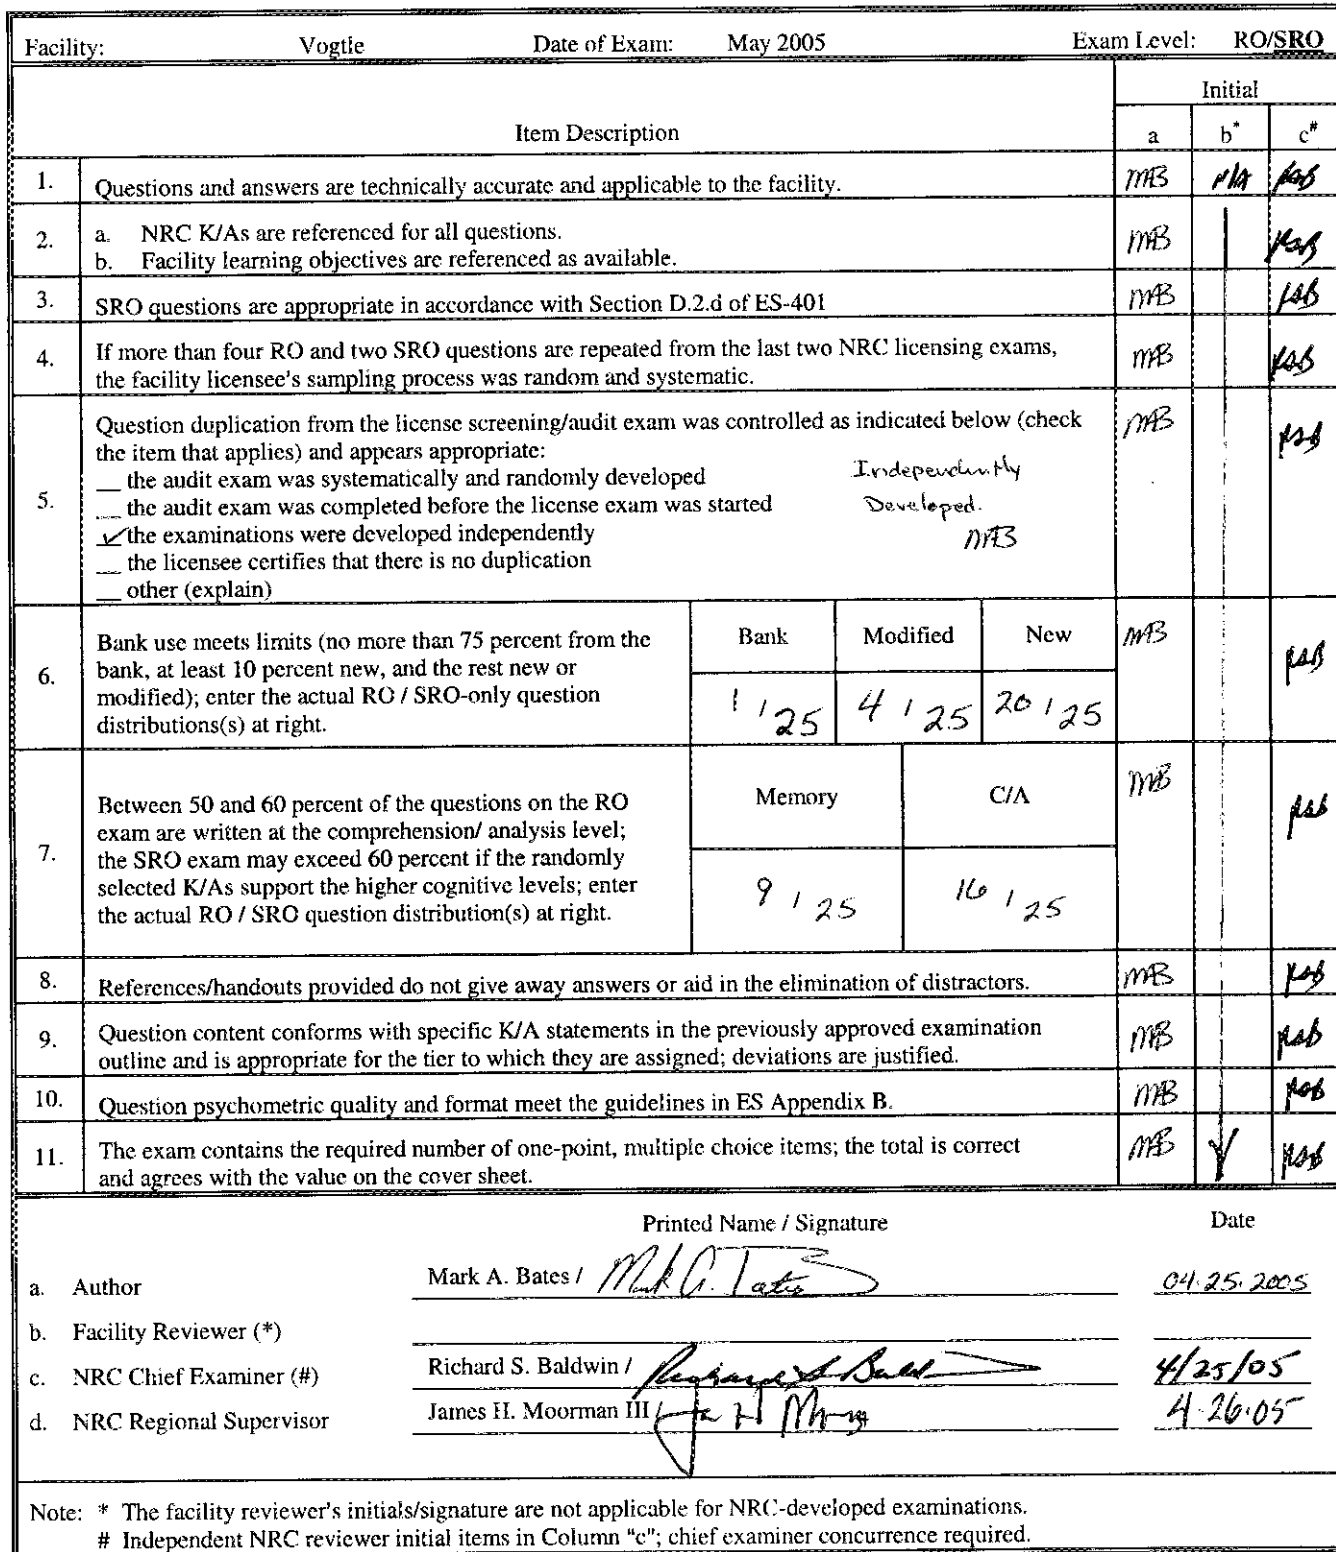 Facility: Vogtle Date of Exam: May 2005 Exam Level: RO/SRO
Initial
Item Description a b* c#
1. Questions and answers are technically accurate and applicable to the facility. MAB N/A RSB
2. a. NRC K/As are referenced for all questions.
b. Facility learning objectives are referenced as available. MAB RSB
3. SRO questions are appropriate in accordance with Section D.2.d of ES-401 MAB RSB
4. If more than four RO and two SRO questions are repeated from the last two NRC licensing exams,
the facility licensee's sampling process was random and systematic. MAB RSB
5. Question duplication from the license screening/audit exam was controlled as indicated below (check
the item that applies) and appears appropriate: MAB RSB
__ the audit exam was systematically and randomly developed Independently
__ the audit exam was completed before the license exam was started Developed.
✓ the examinations were developed independently MAB
__ the licensee certifies that there is no duplication
__ other (explain)
6. Bank use meets limits (no more than 75 percent from the
bank, at least 10 percent new, and the rest new or
modified); enter the actual RO / SRO-only question
distributions(s) at right.
Bank Modified New MAB RSB
1 / 25 4 / 25 20 / 25
7. Between 50 and 60 percent of the questions on the RO
exam are written at the comprehension/ analysis level;
the SRO exam may exceed 60 percent if the randomly
selected K/As support the higher cognitive levels; enter
the actual RO / SRO question distribution(s) at right.
Memory C/A MAB RSB
9 / 25 16 / 25
8. References/handouts provided do not give away answers or aid in the elimination of distractors. MAB RSB
9. Question content conforms with specific K/A statements in the previously approved examination
outline and is appropriate for the tier to which they are assigned; deviations are justified. MAB RSB
10. Question psychometric quality and format meet the guidelines in ES Appendix B. MAB RSB
11. The exam contains the required number of one-point, multiple choice items; the total is correct
and agrees with the value on the cover sheet. MAB RSB
Printed Name / Signature Date
a. Author Mark A. Bates / Mark A. Bates 04.25.2005
b. Facility Reviewer (*)
c. NRC Chief Examiner (#) Richard S. Baldwin / Richard S Baldwin 4/25/05
d. NRC Regional Supervisor James H. Moorman III / 4.26.05
Note: * The facility reviewer's initials/signature are not applicable for NRC-developed examinations.
# Independent NRC reviewer initial items in Column "c"; chief examiner concurrence required.